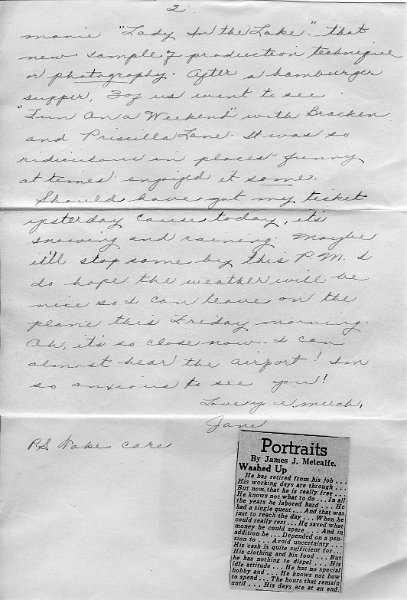 2.
movie "Lady In the Lake" that
new sample of production technique
or photography. After a hamburger
supper, 3 of us went to see
"Fun On a Weekend" with Bracken
and Priscilla Lane It was so
ridiculous in places funny
at times enjoyed it some.
Should have got my ticket
yesterday cause today, it's
snowing and raining. Maybe
it'll stop some by this P.M. I
do hope the weather will be
nice so I can leave on the
plane this Friday morning.
Oh, it's so close now I can
almost hear the airport! Im
so anxious to see you!
Love, much,
Jane
P.S. Take care
Portraits
By James J. Metcalfe.
Washed Up
He has retired from his job . . .
His working days are through . . .
But now that he is really free . . .
He knows not what to do . . . In all
the years he labored hard . . . He
had a single quest . . . And that was
just to reach the day . . . When he
could really rest . . . He saved what
money he could spare . . . And in
addition he . . . Depended on a pen-
sion to . . . Avoid uncertainty . . .
His cash is quite sufficient for . . .
His clothing and his food . . . But
he has nothing to dispel . . . His
idle attitude . . . He has no special
hobby and . . . He knows not how
to spend . . . The hours that remain
until . . . His days are at an end.